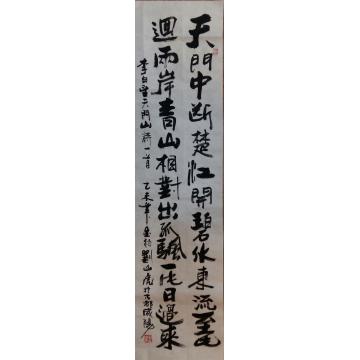 天門中断楚江開碧水東流至此
迴兩岸青山相對出孤颿一片日邊來
李白望天門山詩一首 乙未年 劉山虎於古都咸陽